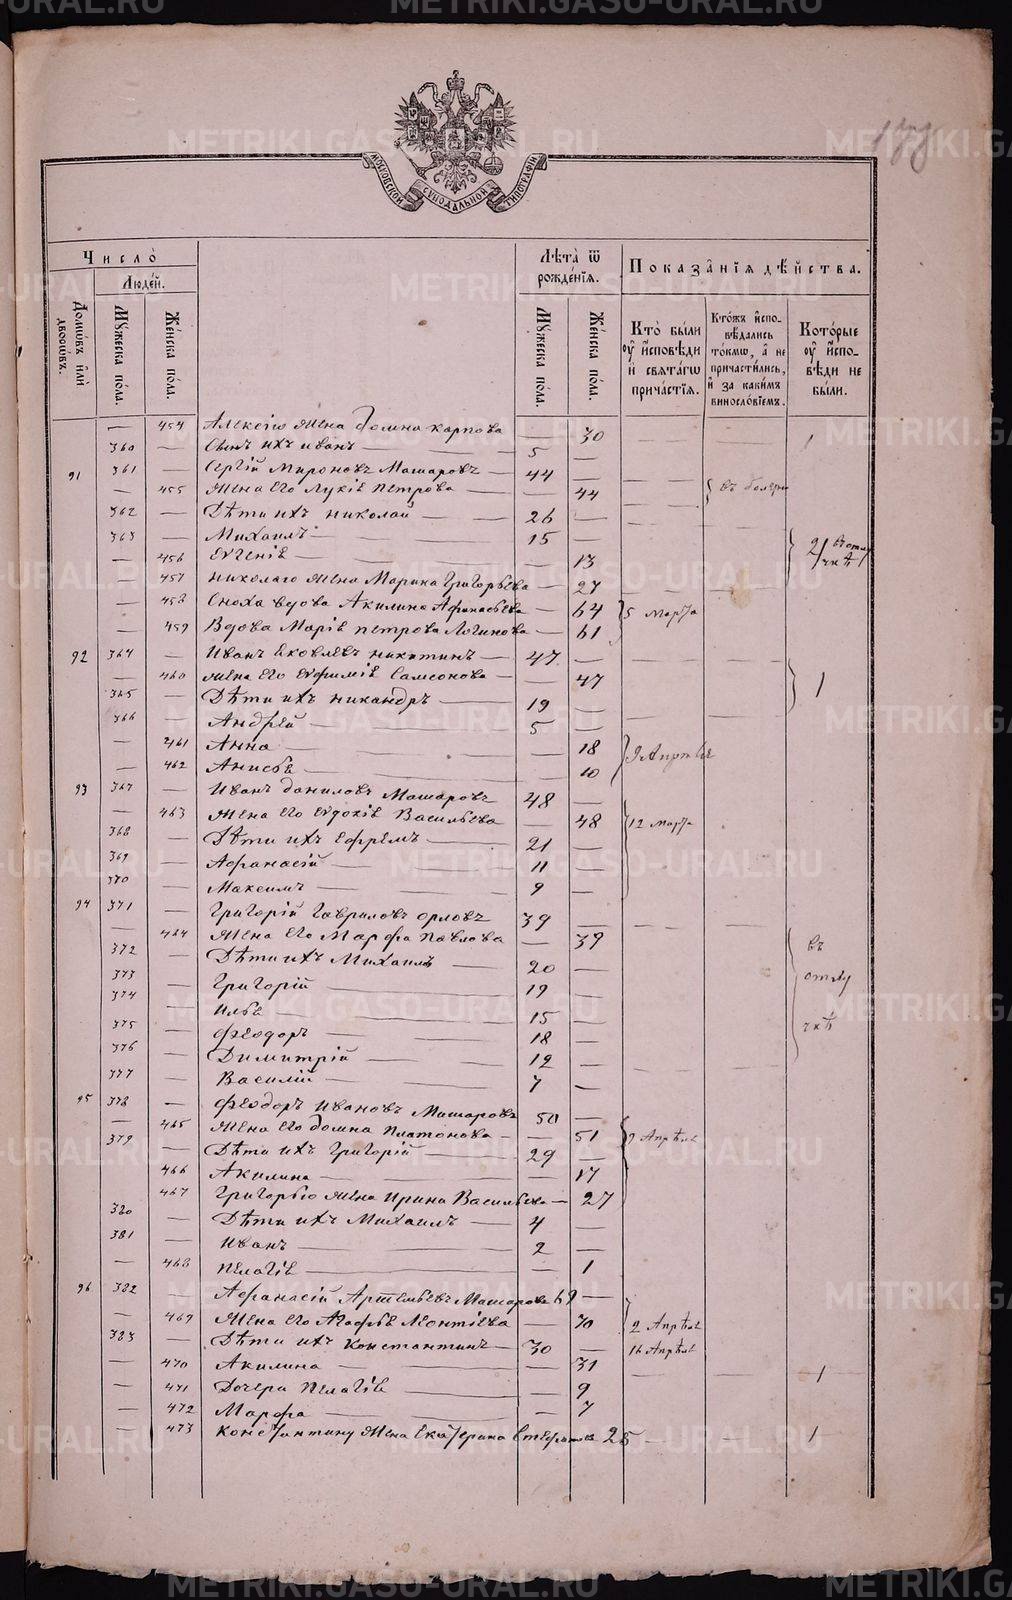 178
МОСКОВСКОЙ СѴНОДАЛЬНОЙ ТИПОГРАФІИ
Число̀ | Лѣта̀ ѿ рожде́нїѧ. | Показа̂нїѧ дѣ́йства.
Люде́й.
Домѡ́въ и҆лѝ дворѡ́въ. | Мꙋ́жеска по́ла. | Же́нска по́ла. | Мꙋ́жеска по́ла. | Же́нска по́ла. | Кто̀ бы́ли ᲂу҆ и҆сповѣди и҆ свѧта́гѡ прича́стїѧ. | Кто́жъ и҆спо-вѣ́дались то́кмѡ, а҆ не причасти́лись, и҆ за каки́мъ винослові́емъ. | Кото́рые ᲂу҆ и҆спо-вѣди не бы́ли.
— 454 Алексѣю жена Домна Карпова — 30 1
360 — Сынъ ихъ Иванъ 5 —
91 361 — Сергій Мироновъ Машаровъ 44 —
— 455 Жена его Лукія Петрова — 44
362 — Дѣти ихъ Николай 26 —
363 — Михаилъ 15 —
— 456 Евгенія — 13 2
— 457 Николаю жена Марина Григорьева — 27
— 458 Сноха вдова Акилина Афанасьева — 64 5 Марта
— 459 Вдова Марія Петрова Логинова — 61
92 364 — Иванъ Яковлевъ Никитинъ 47 —
— 460 Жена его Евфимія Самсонова — 47 1
365 — Дѣти ихъ Никандръ 19 —
366 — Андрей 5 —
— 461 Анна — 18 9 Апрѣля
— 462 Анисья — 10
93 367 — Иванъ Даниловъ Машаровъ 48 —
— 463 Жена его Евдокія Васильева — 48 12 Марта
368 — Дѣти ихъ Ефремъ 21 —
369 — Афанасій 11 —
370 — Максимъ 9 —
94 371 — Григорій Гавриловъ Орловъ 39 —
— 464 Жена его Марфа Павлова — 39 въ
372 — Дѣти ихъ Михаилъ 20 — отлу
373 — Григорій 19 —
374 — Илья 15 — чкѣ
375 — Феодоръ 18 —
376 — Димитрій 12 —
377 — Василій 7 —
95 378 — Феодоръ Ивановъ Машаровъ 50 —
— 465 Жена его Домна Платонова — 51 9 Апрѣля
379 — Дѣти ихъ Григорій 29 —
— 466 Акилина — 17
— 467 Григорью жена Ирина Васильева — 27
380 — Дѣти ихъ Михаилъ 4 —
381 — Иванъ 2 —
— 468 Пелагія — 1
96 382 — Афанасій Артемьевъ Машаровъ 69 —
— 469 Жена его Агафья Леонтіева — 70 2 Апрѣля
383 — Дѣти ихъ Константинъ 30 — 16 Апрѣля
— 470 Акилина — 31 1
— 471 Дочери Пелагія — 9
— 472 Марфа — 7
— 473 Константину жена Екатерина 25 — 1
METRIKI.GASO-URAL.RU